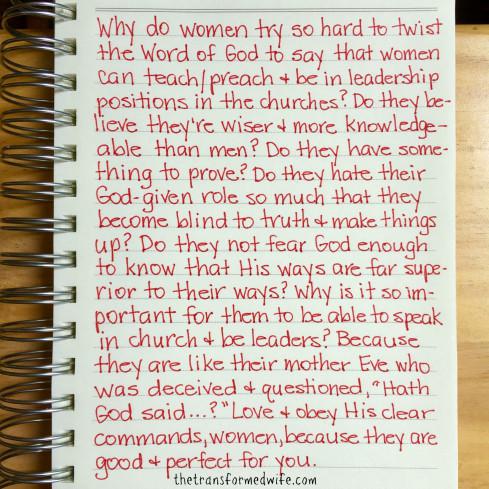 Why do women try so hard to twist
the Word of God to say that women
can teach/preach & be in leadership
positions in the churches? Do they be-
lieve they're wiser & more knowledge-
able than men? Do they have some-
thing to prove? Do they hate their
God-given role so much that they
become blind to truth & make things
up? Do they not fear God enough
to know that His ways are far supe-
rior to their ways? Why is it so im-
portant for them to be able to speak
in church & be leaders? Because
they are like their mother Eve who
was deceived & questioned, "Hath
God said...?" Love & obey His clear
commands, women, because they are
good & perfect for you.
thetransformedwife.com